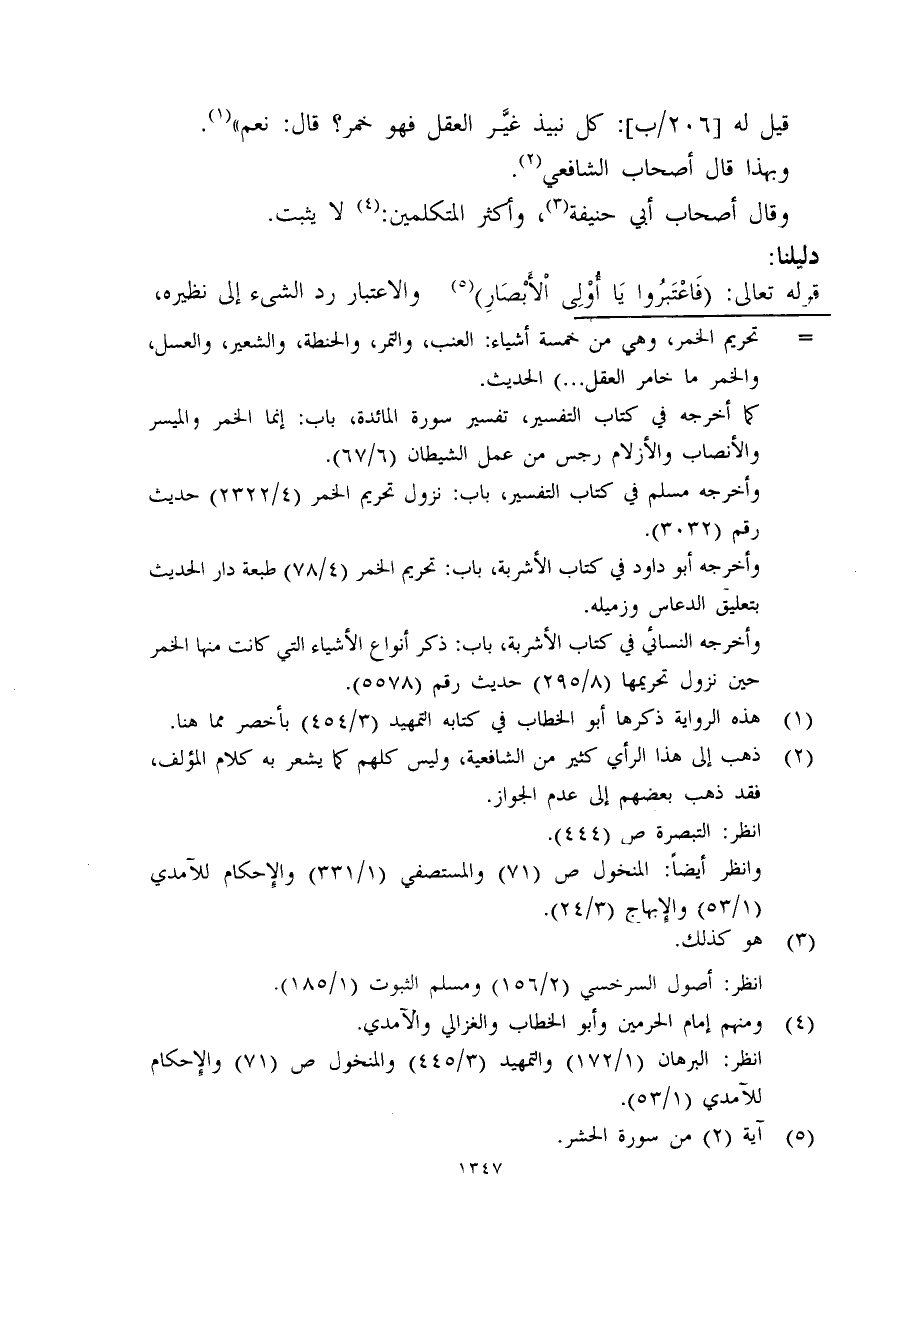 قيل له [٢٠٦/ب]: كل نبيذ غيَّر العقل فهو خمر؟ قال: نعم»(١).
وبهذا قال أصحاب الشافعي(٢).
وقال أصحاب أبي حنيفة(٣)، وأكثر المتكلمين:(٤) لا يثبت.
دليلنا:
قوله تعالى: (فَاعْتَبِرُوا يَا أُوْلِى الْأَبْصَارِ)(٥) والاعتبار رد الشىء إلى نظيره،
= تحريم الخمر، وهي من خمسة أشياء: العنب، والتمر، والحنطة، والشعير، والعسل،
والخمر ما خامر العقل...) الحديث.
كما أخرجه في كتاب التفسير، تفسير سورة المائدة، باب: إنما الخمر والميسر
والأنصاب والأزلام رجس من عمل الشيطان (٦٧/٦).
وأخرجه مسلم في كتاب التفسير، باب: نزول تحريم الخمر (٢٣٢٢/٤) حديث
رقم (٣٠٣٢).
وأخرجه أبو داود في كتاب الأشربة، باب: تحريم الخمر (٧٨/٤) طبعة دار الحديث
بتعليق الدعاس وزميله.
وأخرجه النسائي في كتاب الأشربة، باب: ذكر أنواع الأشياء التي كانت منها الخمر
حين نزول تحريمها (٢٩٥/٨) حديث رقم (٥٥٧٨).
(١) هذه الرواية ذكرها أبو الخطاب في كتابه التمهيد (٤٥٤/٣) بأخصر مما هنا.
(٢) ذهب إلى هذا الرأي كثير من الشافعية، وليس كلهم كما يشعر به كلام المؤلف،
فقد ذهب بعضهم إلى عدم الجواز.
انظر: التبصرة ص (٤٤٤).
وانظر أيضاً: المنخول ص (٧١) والمستصفي (٣٣١/١) والإحكام للآمدي
(٥٣/١) والإبهاج (٢٤/٣).
(٣) هو كذلك.
انظر: أصول السرخسي (١٥٦/٢) ومسلم الثبوت (١٨٥/١).
(٤) ومنهم إمام الحرمين وأبو الخطاب والغزالي والآمدي.
انظر: البرهان (١٧٢/١) والتمهيد (٤٤٥/٣) والمنخول ص (٧١) والإحكام
للآمدي (٥٣/١).
(٥) آية (٢) من سورة الحشر.
١٣٤٧